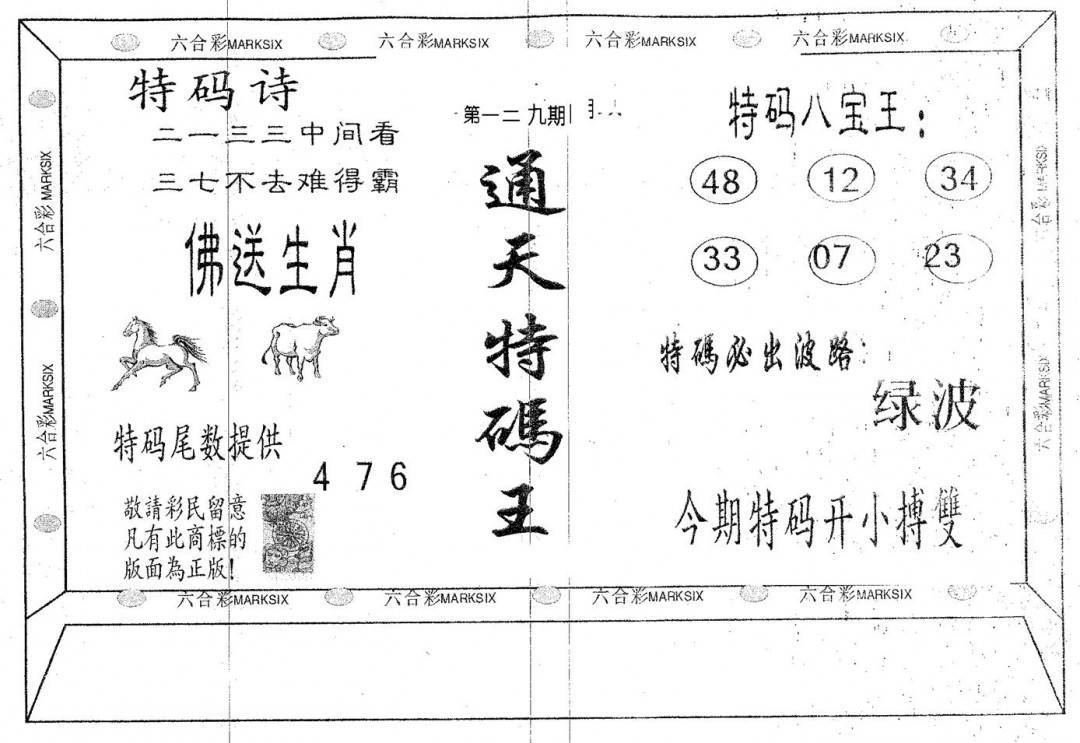 六合彩MARKSIX 六合彩MARKSIX 六合彩MARKSIX 六合彩MARKSIX
特码诗
二一三三中间看
三七不去难得霸
佛送生肖
特码尾数提供
4 7 6
敬請彩民留意
凡有此商標的
版面為正版!
第一二九期
通天特碼王
特码八宝王:
48 12 34
33 07 23
特碼必出波路:
绿波
今期特码开小搏雙
六合彩MARKSIX
六合彩MARKSIX
六合彩MARKSIX
六合彩MARKSIX 六合彩MARKSIX 六合彩MARKSIX 六合彩MARKSIX